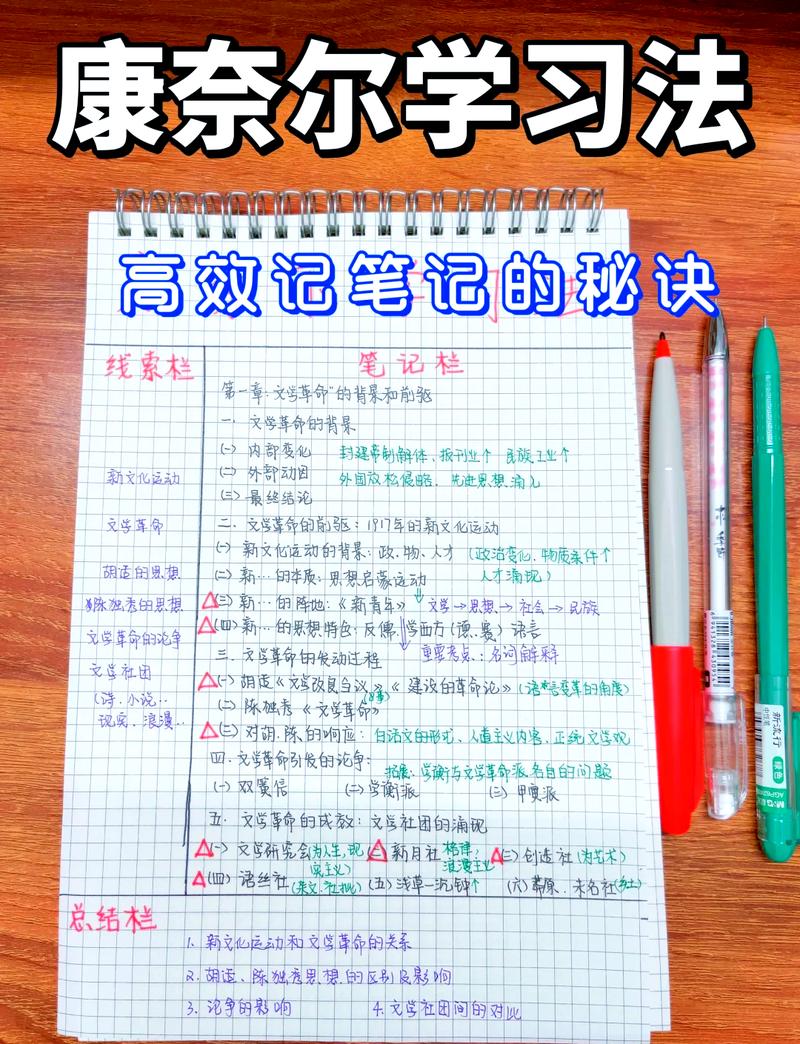 康奈尔学习法
高效记笔记的秘诀
线索栏
笔记栏
第一章:"文学革命"的背景和前驱
一. 文学革命的背景
(一) 内部变化 封建帝制解体、报刊业个 民族工业个
新文化运动
(二) 外部动因 外国放松侵略、先进思想涌入
(三) 最终结论
文学革命
二. 文学革命的前驱:1917年的新文化运动
(一) 新文化运动的背景:政、物、人才 (政治变化、物质条件↑
人才涌现)
胡适的思想
(二) 新…的本质:思想启蒙运动
陈独秀的思想
△(三) 新…的阵地:《新青年》 文学→思想→社会→民族
△(四) 新…的思想特色:反儒、学西方(德、赛) 语言
文学革命的论争
三. 文学革命的发动过程 重要考点:名词解释
文学社团
△(一) 胡适《文学改良刍议》《建设的革命论》(语言变革的角度)
(诗、小说..
(二) 陈独秀《文学革命》
现实、浪漫..
△(三) 对胡、陈的响应:白话文的形式、人道主义内容、正统文学观
四. 文学革命引发的论争: 拓展:学衡与文学革命派各自的问题
(一) 双簧信 (二) 学衡派 (三) 甲寅派
五. 文学革命的成效:文学社团的涌现
△(一) 文学研究会(为人生,现实主义) △(二) 新月社 格律,浪漫主义 △(三) 创造社(为艺术)
△(四) 语丝社(杂文、社批) (五) 浅草—沉钟↑ (六) 莽原、未名社(乡土)
总结栏
1. 新文化运动和文学革命的关系
2. 胡适、陈独秀思想的区别及影响
3. 论争的影响 4. 文学社团间的对比
新流行
中性笔
绿色